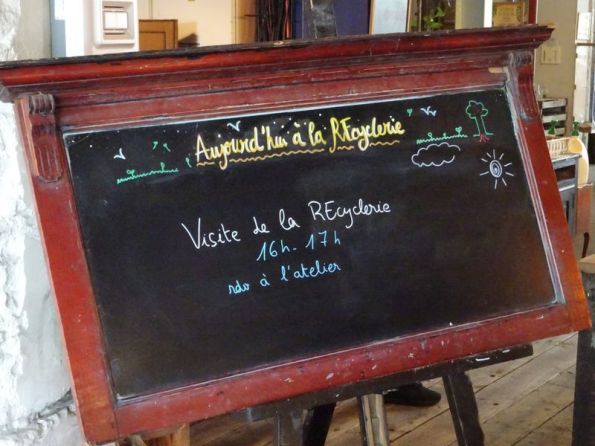 Aujourd'hui à la REcyclerie
Visite de la REcyclerie
16h - 17h
rdv à l'atelier